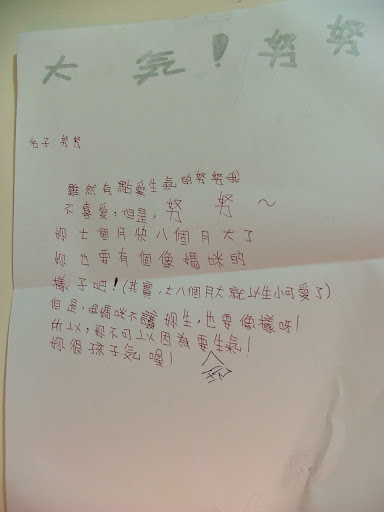 大 氣！努努
名子：努努
雖然有點愛生氣的努努我
不喜愛，但是，努 努～
妳七個月快八個月大了
妳也要有個像媽咪的
樣子吧！(其實，七八個月大就以生小可愛了)
但是，媽咪不讓妳生，也要像樣呀！
所以，妳不可以因為要生氣！
妳很孩子氣喔！